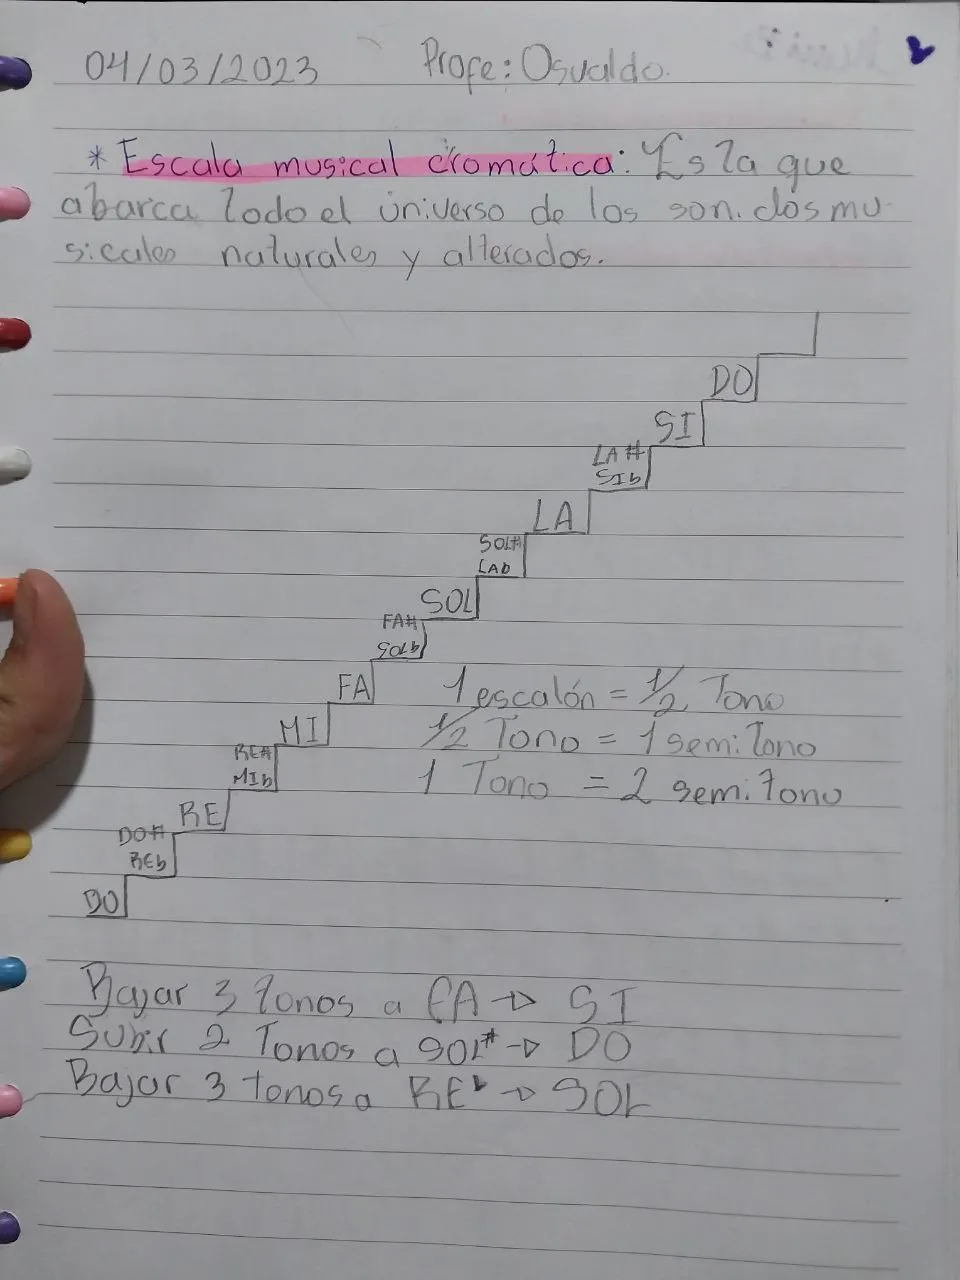 04/03/2023 Profe: Osvaldo.
* Escala musical cromática: Es la que
abarca todo el universo de los sonidos mu-
sicales naturales y alterados.
DO
SI
LA#
SIb
LA
SOL#
LAb
SOL
FA#
SOLb
FA
1 escalón = 1/2 Tono
MI
1/2 Tono = 1 semitono
RE#
MIb
1 Tono = 2 semitono
RE
DO#
REb
DO
Bajar 3 tonos a FA → SI
Subir 2 Tonos a SOL# → DO
Bajar 3 tonos a REb → SOL